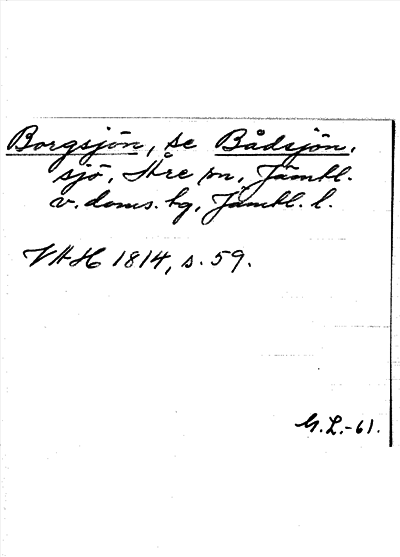 Borgsjön, se Bådsjön,
sjö, Åre sn, Jämtl.
v. doms. hg, Jämtl. l.
VAH 1814, s. 59.
G.L.-61.